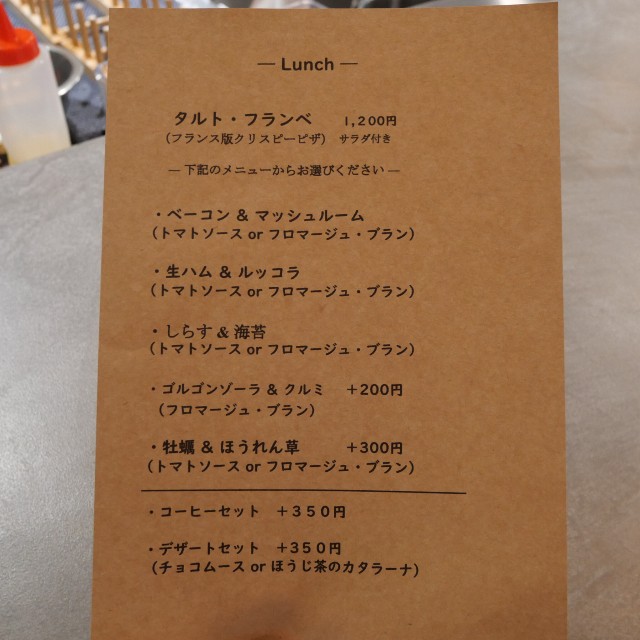 — Lunch —
タルト・フランベ 1,200円
（フランス版クリスピーピザ） サラダ付き
— 下記のメニューからお選びください —
・ベーコン & マッシュルーム
（トマトソース or フロマージュ・ブラン）
・生ハム & ルッコラ
（トマトソース or フロマージュ・ブラン）
・しらす & 海苔
（トマトソース or フロマージュ・ブラン）
・ゴルゴンゾーラ & クルミ +200円
（フロマージュ・ブラン）
・牡蠣 & ほうれん草 +300円
（トマトソース or フロマージュ・ブラン）
・コーヒーセット +３５０円
・デザートセット +３５０円
（チョコムース or ほうじ茶のカタラーナ）